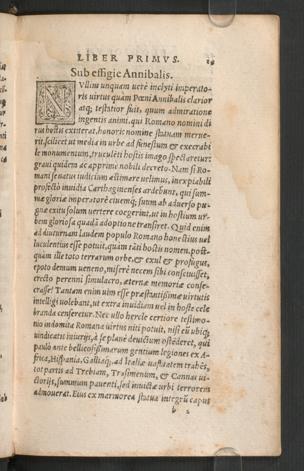 LIBER PRIMVS. 19
Sub effigie Annibalis.
NVllius unquam uetẽ inclyti imperato-
ris uirtus quàm Pœni Annibalis clarior
atq; testatior fuit, quum admiratione
ingentis animi, qui Romano nomini di
rus hostis extiterat, honoris nomine statuam merue-
rit, scilicet ut media in urbe ad funestum & execrabi
le monumentum, truculẽti hostis imago spectaretur:
graui quidem ac apprimè nobili decreto. Nam si Ro-
mani senatus iudicium æstimare uelimus, inexpiabili
profectò inuidia Carthaginenses ardebunt, qui sum-
mæ gloriæ imperatorẽ ciuemq; suum ab aduerso pu-
gnæ exitu solum uertere coegerint, ut in hostium ur-
bem gloriosa quadã adoptione transiret. Quid enim
ad diuturnam laudem populo Romano honestius uel
luculentius esse potuit, quàm tãti hostis nomen, post-
quàm ille toto terrarum orbe, & exul & profugus,
epoto demum ueneno, miserè necem sibi consciuisset,
erecto perenni simulacro, æternæ memoriæ conse-
crasse? Tantam enim uim esse præstantissimæ uirtutis
intelligi uolebant, ut extra inuidiam uel in hoste cele
branda censeretur. Nec ullo hercle certiore testimo-
nio indomita Romana uirtus niti potuit, nisi eũ ubiq;
uindicatis iniurijs, à se planè deuictum ostẽderet, qui
paulò ante bellicosissimarum gentium legiones ex A-
frica, Hispania, Galliaq; ad Italiæ uastitatem trahẽs,
tot partis ad Trebiam, Trasimenum, & Cannas ui-
ctorijs, summum pauenti, sed inuictæ urbi terrorem
admouerat. Eius ex marmorea statua integrũ caput
b 2